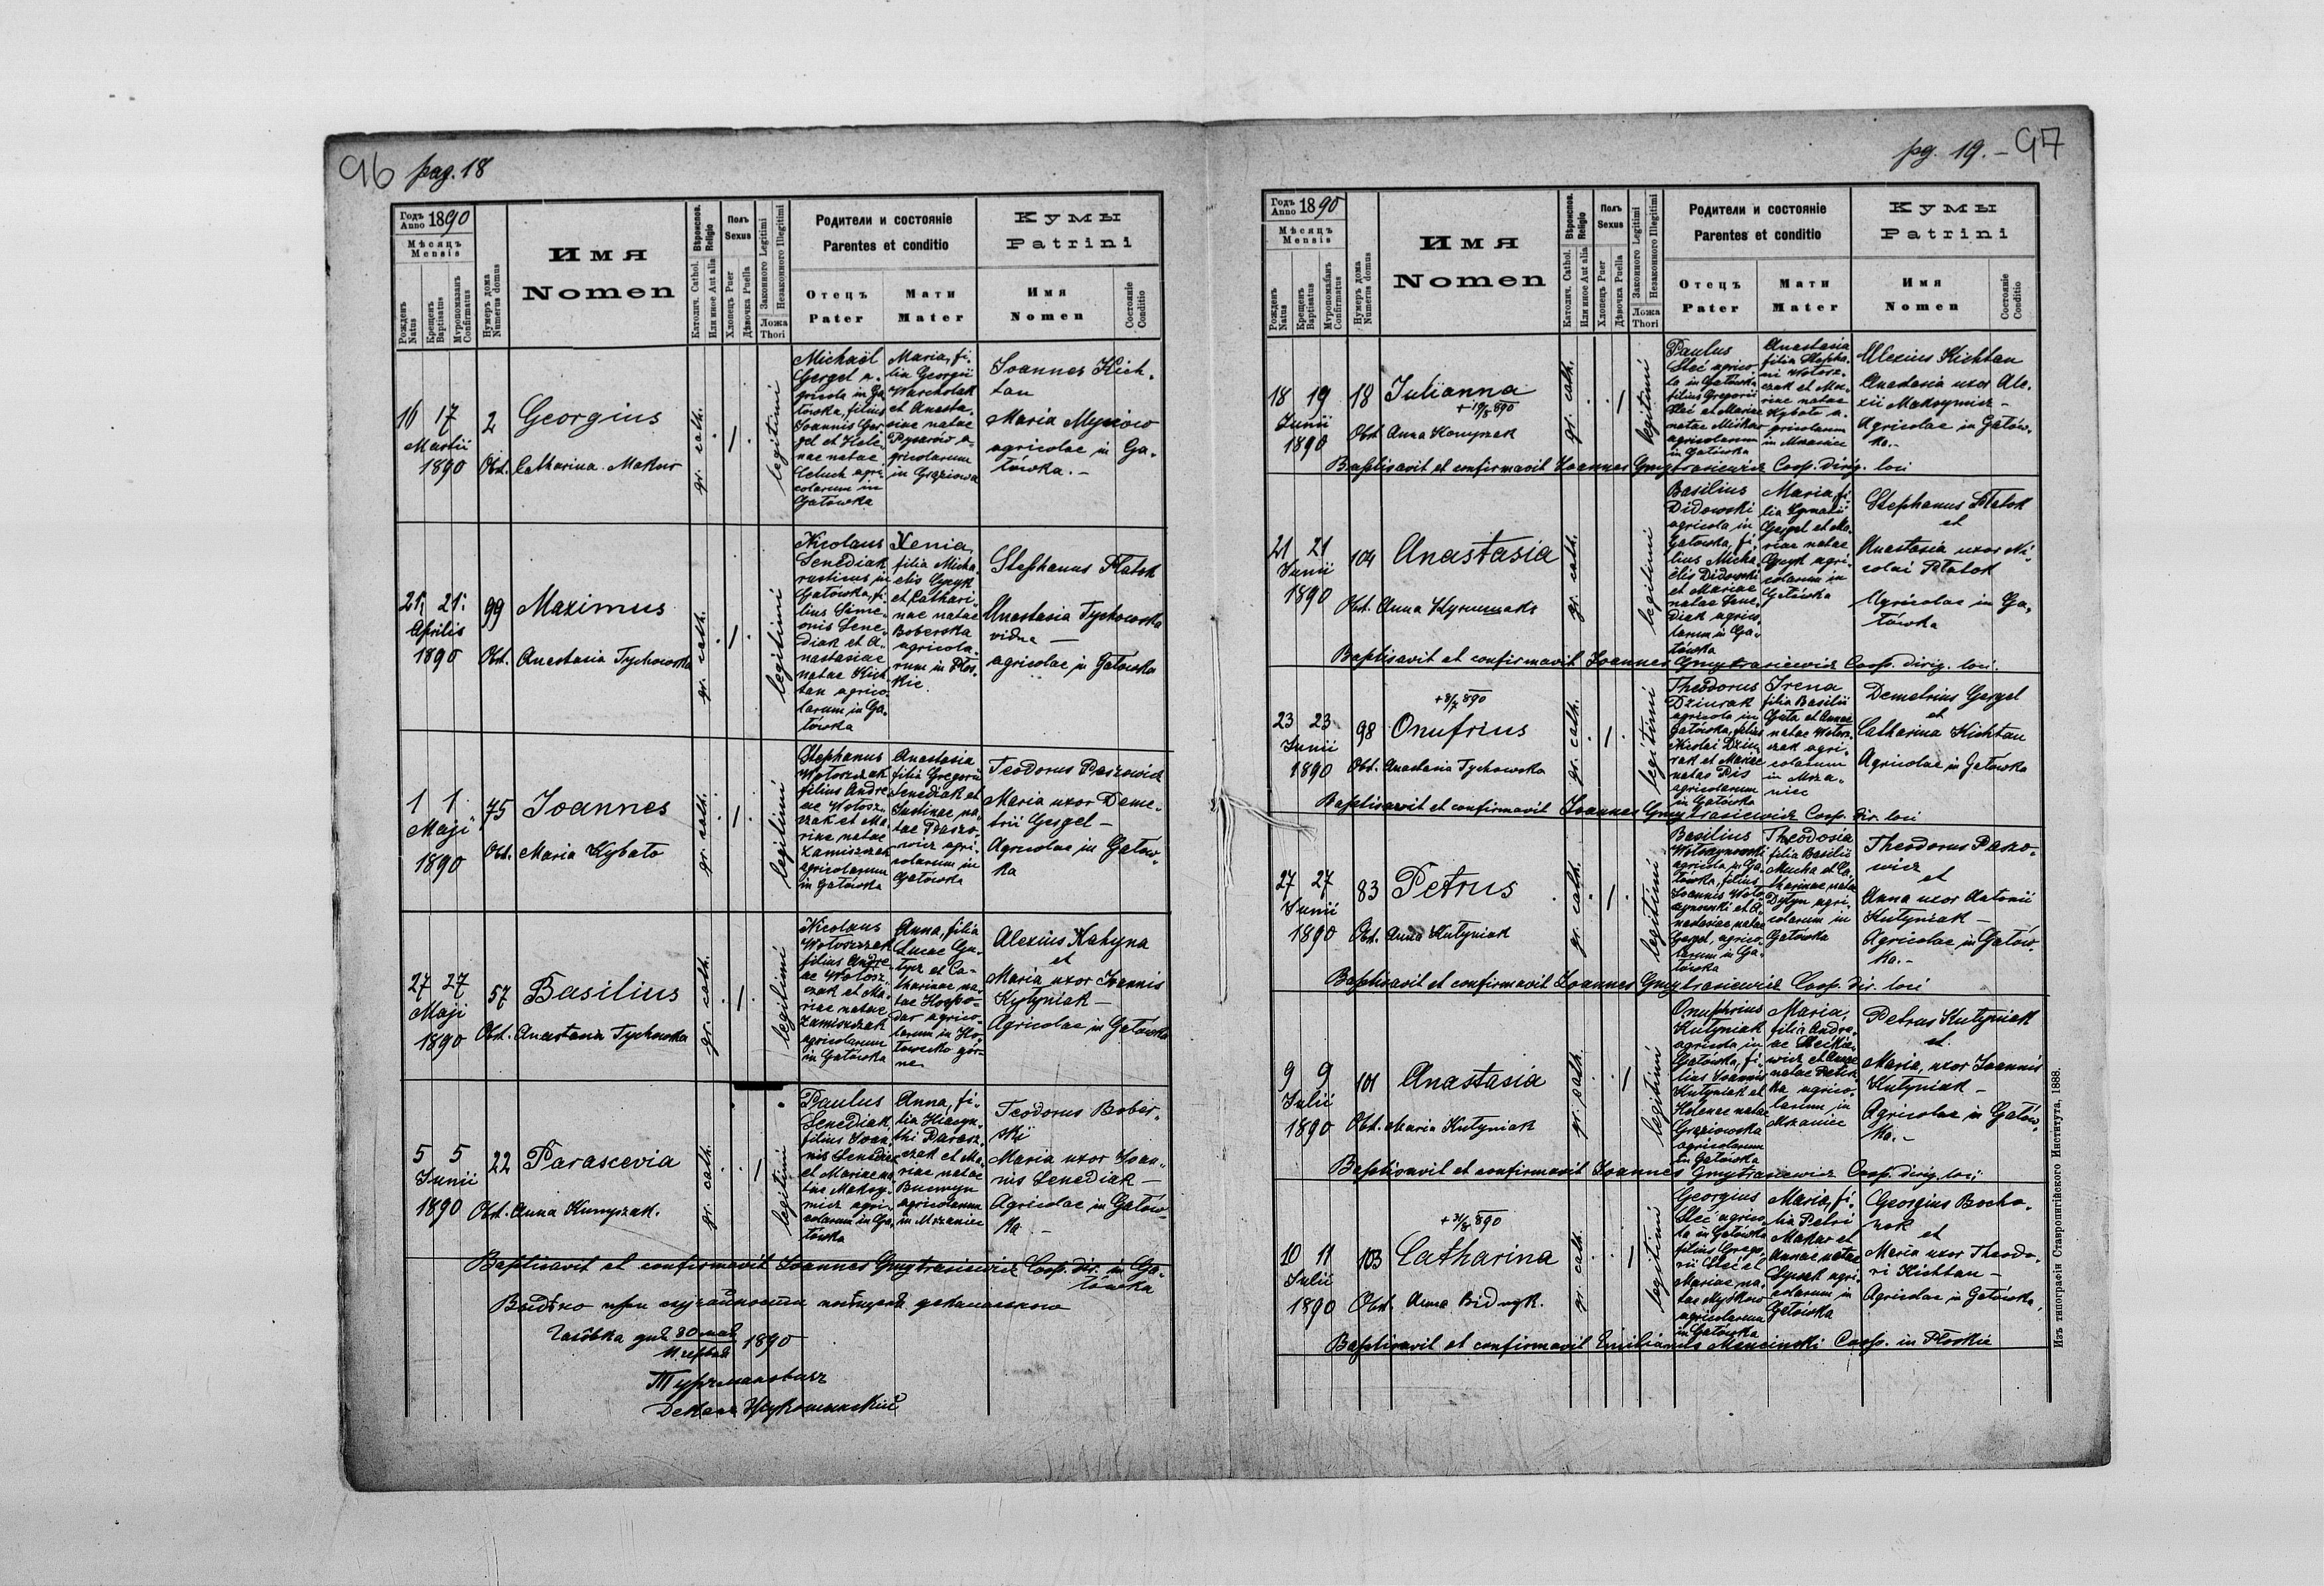 96 pag. 18
Годъ
Anno 1890
Мѣсяцъ
Mensis
Рожденъ
Natus
Крещенъ
Baptisatus
Мѵропомазанъ
Confirmatus
Нумеръ дома
Numerus domus
Имя
Nomen
Вѣроиспов.
Religio
Католич. Cathol.
Или иное Aut alia
Полъ
Sexus
Хлопецъ Puer
Дѣвочка Puella
Законного Legitimi
Незаконного Illegitimi
Ложа
Thori
Родители и состояніе
Parentes et conditio
Отецъ
Pater
Мати
Mater
Кумы
Patrini
Имя
Nomen
Состояніе
Conditio
16 17
Martii
1890
2
Georgius
Obst. Catharina Makar
gr. cath.
legitimi
Michaël
Gergel a-
gricola in Ga
łówka, filius
Joannis Ger-
gel et Hele
nae natae
Celuch agri
colarum in
Gałówka
Maria, fi-
lia Georgii
Warcholak
et Anasta-
siae natae
Pysarów a-
gricolarum
in Grąziowa
Joannes Kich-
tan
Maria
agricolae in Ga-
łówka. -
21 21
Aprilis
1890
99
Maximus
Obst. Anastasia Tychowska
gr. cath.
legitimi
Nicolaus
Senediak
rusticus in
Gałówka, fi-
lius Sime-
onis Sene-
diak et A-
nastasiae
natae Kich-
tan agrico-
larum in Ga-
łówka
Xenia,
filia Micha-
elis
et Cathari-
nae natae
Boberska
agricola-
rum in Płos-
kie.
Stephanus Płatok
Anastasia Tychowska
vidua —
agricolae in Gałówka
1 1
Maji
1890
75
Joannes
Obst. Maria Kybało
gr. cath.
legitimi
Stephanus
Wołoszczak
filius Andre
ae Wołosz-
czak et Ma-
riae natae
Zamiszczak
agricolarum
in Gałówka
Anastasia
filia Gregorii
Senediak et
Justinae na-
tae Paszo-
wicz agri-
colarum in
Gałówka
Teodorus Paszowicz
Maria uxor Deme-
trii Gergel —
Agricolae in Gałów-
ka
27 27
Maji
1890
57
Basilius
Obst. Anastasia Tychowska
gr. cath.
legitimi
Nicolaus
Wołoszczak
filius Andre-
ae Wołosz
czak et Ma-
riae natae
Zamiszczak
agricolarum
in Gałówka
Anna, filia
Lucae
et Ca-
tharinae na-
tae Hospo-
dar agrico-
larum in Ho-
łowecko gór-
ne
Alexius Nahyna
et
Maria uxor Joannis
Kutyniak —
Agricolae in Gałówka
5 5
Junii
1890
22
Parascevia
Obst. Anna Kunyczak.
gr. cath.
legitimi
Paulus
Senediak,
filius Joan-
nis Senediak
et Mariae na
tae Maksy-
micz agri-
colarum in Ga-
łówka
Anna, fi-
lia Hiacyn-
thi Parasz-
czak et Ma-
riae natae
agricolarum
in Mszaniec
Teodorus Bober-
ski
Maria uxor Joan-
nis Senediak —
Agricolae in Gałów-
ka. -
Baptisavit et confirmavit Joannes Gmytrasiewicz Coop. dir. in Ga-
łówka
Видѣно при случайности деканального
Галôвка дня 30 мая 1890
11 червня
Деканъ
pg. 19. - 97
Годъ
Anno 1890
Мѣсяцъ
Mensis
Рожденъ
Natus
Крещенъ
Baptisatus
Мѵропомазанъ
Confirmatus
Нумеръ дома
Numerus domus
Имя
Nomen
Вѣроиспов.
Religio
Католич. Cathol.
Или иное Aut alia
Полъ
Sexus
Хлопецъ Puer
Дѣвочка Puella
Законного Legitimi
Незаконного Illegitimi
Ложа
Thori
Родители и состояніе
Parentes et conditio
Отецъ
Pater
Мати
Mater
Кумы
Patrini
Имя
Nomen
Состояніе
Conditio
18 19
Junii
1890
18
Julianna
Obst. Anna Konyczak
gr. cath.
legitimi
Paulus
Steć agrico-
la in Gałówka
filius Gregorii
Steć et Mariae
natae
agricolarum
in Gałówka
Anastasia
filia Stepha-
ni Wołosz-
czak et Ma-
riae natae
Kybało a-
gricolarum
in Mszaniec
Alexius Kichtan
Anastasia uxor Ale-
xii Maksymicz —
Agricolae in Gałów-
ka. -
Baptisavit et confirmavit Joannes Gmytrasiewicz Coop. dirig. loci
21 21
Junii
1890
104
Anastasia
Obst. Anna
gr. cath.
legitimi
Basilius
Didowski
agricola in
Gałówka, fi-
lius Micha-
elis Didowski
et Mariae
natae Sene-
diak agrico-
larum in Ga-
łówka
Maria, fi-
lia
Gergel et Ma-
riae natae
agri-
colarum in
Gałówka
Stephanus Płatok
et
Anastasia uxor Ni-
colai Płatok
Agricolae in Ga-
łówka
Baptisavit et confirmavit Joannes Gmytrasiewicz Coop. dirig. loci.
23 23
Junii
1890
98
+ 8/7 890
Onufrius
Obst. Anastasia Tychowska
gr. cath.
legitimi
Theodorus
Dziurak
agricola in
Gałówka, filius
Nicolai Dziu
rak et Mariae
natae Pis
agricolarum
in Gałówka
Irena
filia Basilii
Gała et Annae
natae Wołosz-
czak agri-
colarum
in Msza-
niec
Demetrius Gergel
et
Catharina Kichtan
Agricolae in Gałówka
Baptisavit et confirmavit Joannes Gmytrasiewicz Coop. dir. loci
27 27
Junii
1890
83
Petrus
Obst. Anna Kutyniak
gr. cath.
legitimi
Basilius
agricola in Ga-
łówka, filius
Joannis
et A-
nastasiae natae
Gergel, agrico-
larum in Ga-
łówka
Theodosia
filia Basilii
Mucha et Ca-
tharinae natae
agri-
colarum in
Gałówka
Theodorus Paszo-
wicz
et
Anna uxor Antonii
Kutyniak —
Agricolae in Gałów-
ka. -
Baptisavit et confirmavit Joannes Gmytrasiewicz Coop. dir. loci
9 9
Julii
1890
101
Anastasia
Obst. Maria Kutyniak
gr. cath.
legitimi
Onuphrius
Kutyniak
agricola in
Gałówka, fi-
lius Joannis
Kutyniak et
Helenae natae
Grąziowska
agricolarum
in Gałówka
Maria,
filia Andre-
ae
et Annae
natae
agrico-
larum in
Mszaniec
Petrus Kutyniak
et
Maria, uxor Joannis
Kutyniak —
Agricolae in Gałów-
ka. -
Baptisavit et confirmavit Joannes Gmytrasiewicz Coop. dirig. loci
10 11
Julii
1890
103
+ 31/8 890
Catharina
Obst. Anna Bidnyk.
gr. cath.
legitimi
Georgius
Steć agrico
la in Gałówka
filius Grego-
rii Steć et
Mariae na-
tae
agricolarum
in Gałówka
Maria, fi-
lia Petri
Makar et
Annae natae
agri-
colarum in
Gałówka
Georgius Bocho-
nok
et
Maria uxor Theodo-
ri Kichtan —
Agricolae in Gałówka
Baptisavit et confirmavit Emilianus Mencinski Coop. in Płoskie
Изъ типографіи Ставропигійского Института, 1888.